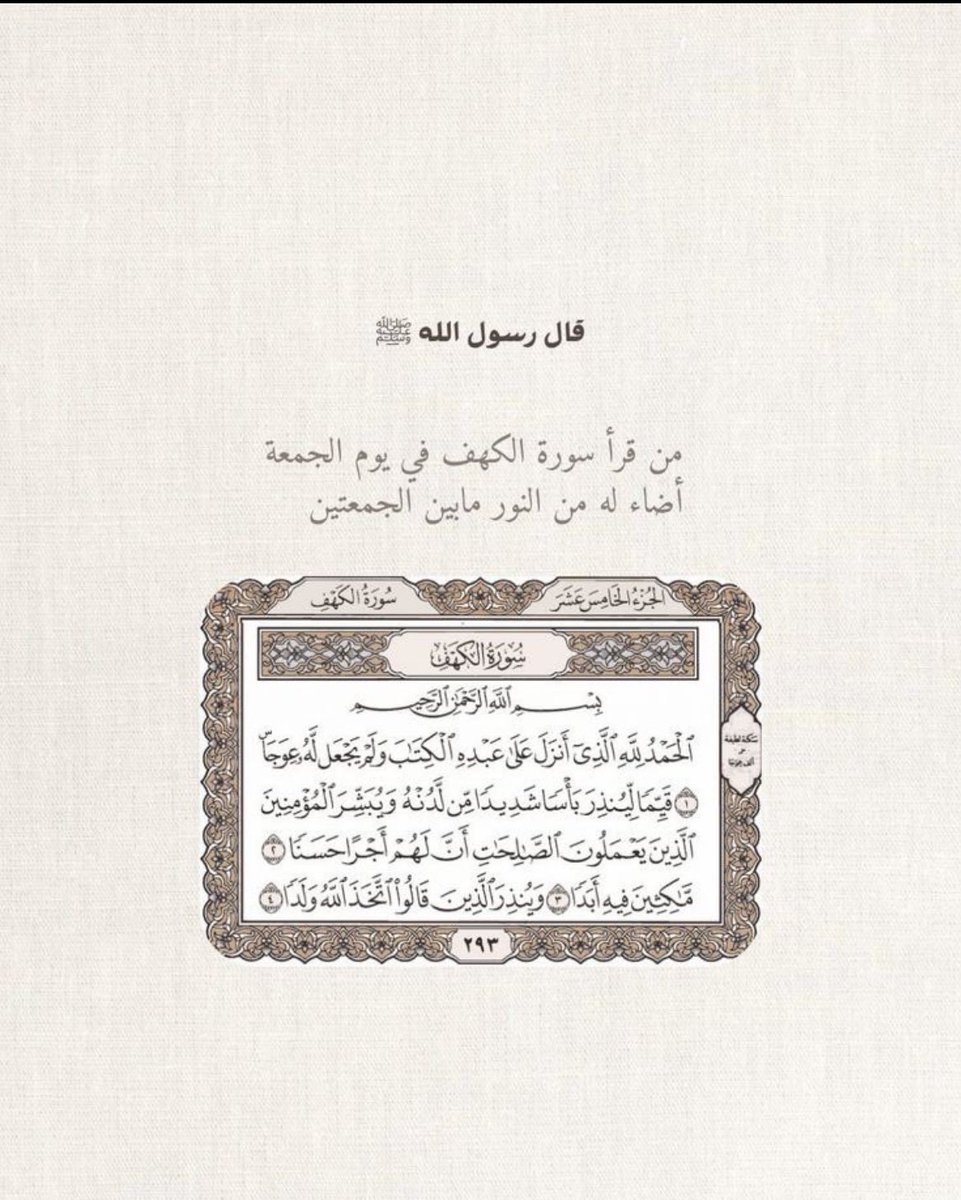 قال رسول الله ﷺ
من قرأ سورة الكهف في يوم الجمعة
أضاء له من النور مابين الجمعتين
الجُزْءُ الخَامِسَ عَشَرَ
سُورَةُ الكَهْفِ
سُورَةُ الكَهْفِ
بِسْمِ اللَّهِ الرَّحْمَٰنِ الرَّحِيمِ
الْحَمْدُ لِلَّهِ الَّذِي أَنزَلَ عَلَىٰ عَبْدِهِ الْكِتَٰبَ وَلَمْ يَجْعَل لَّهُ عِوَجَاۜ
١ قَيِّمًا لِّيُنذِرَ بَأْسًا شَدِيدًا مِّن لَّدُنْهُ وَيُبَشِّرَ الْمُؤْمِنِينَ
الَّذِينَ يَعْمَلُونَ الصَّٰلِحَٰتِ أَنَّ لَهُمْ أَجْرًا حَسَنًا ٢
مَّٰكِثِينَ فِيهِ أَبَدًا ٣ وَيُنذِرَ الَّذِينَ قَالُوا۟ اتَّخَذَ اللَّهُ وَلَدًا ٤
سكتة لطيفة
على
ألف عوجا
٢٩٣